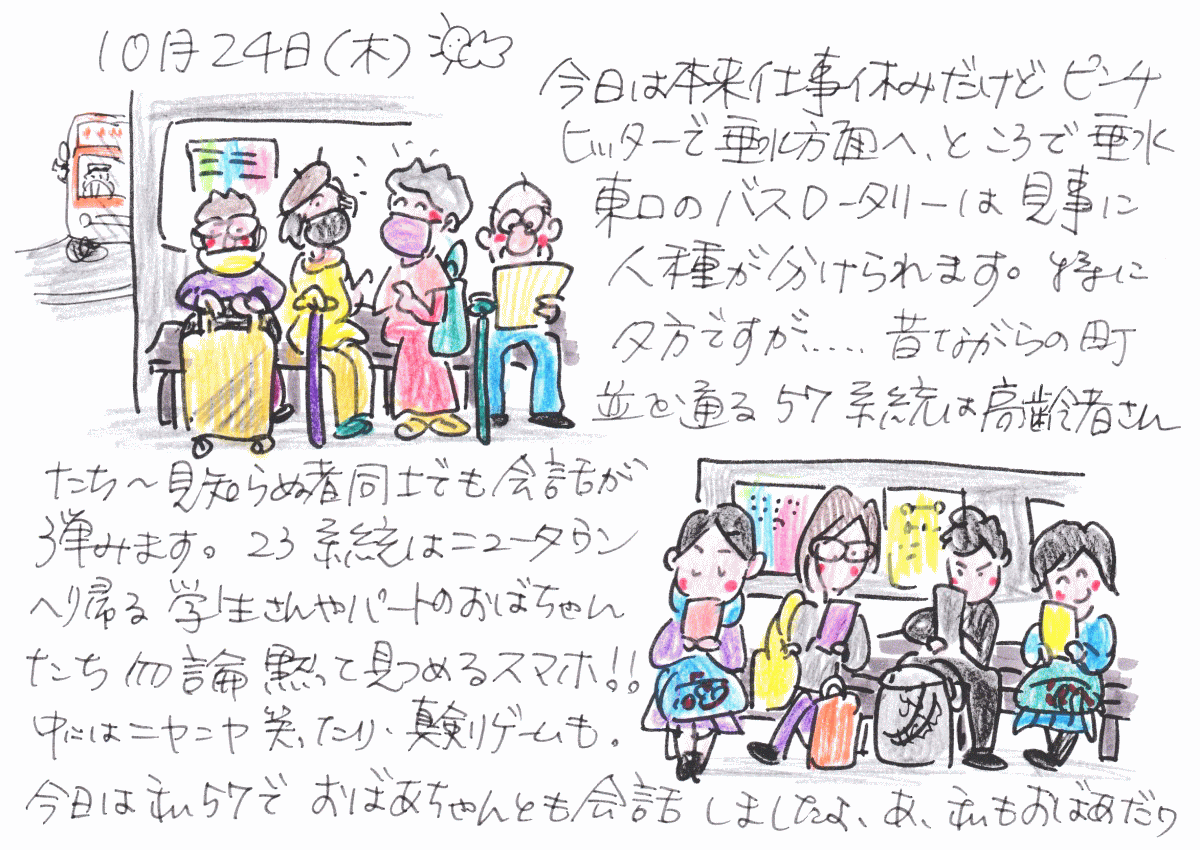 10月24日(木)
今日は本来仕事休みだけど ピンチ
ヒッターで垂水方面へ、ところで垂水
東口のバスロータリーは見事に
人種が分けられます。特に
夕方ですが‥‥‥ 昔ながらの町
並を通る57系統は高齢者さん
たち〜見知らぬ者同士でも会話が
弾みます。23系統はニュータウン
へり帰る学生さんやパートのおばちゃん
たち勿論黙って見つめるスマホ!!
中にはニヤニヤ笑ったり、真剣にゲームも。
今日は私57でおばあちゃんとも会話しましたよ、あ、私もおばあだワ